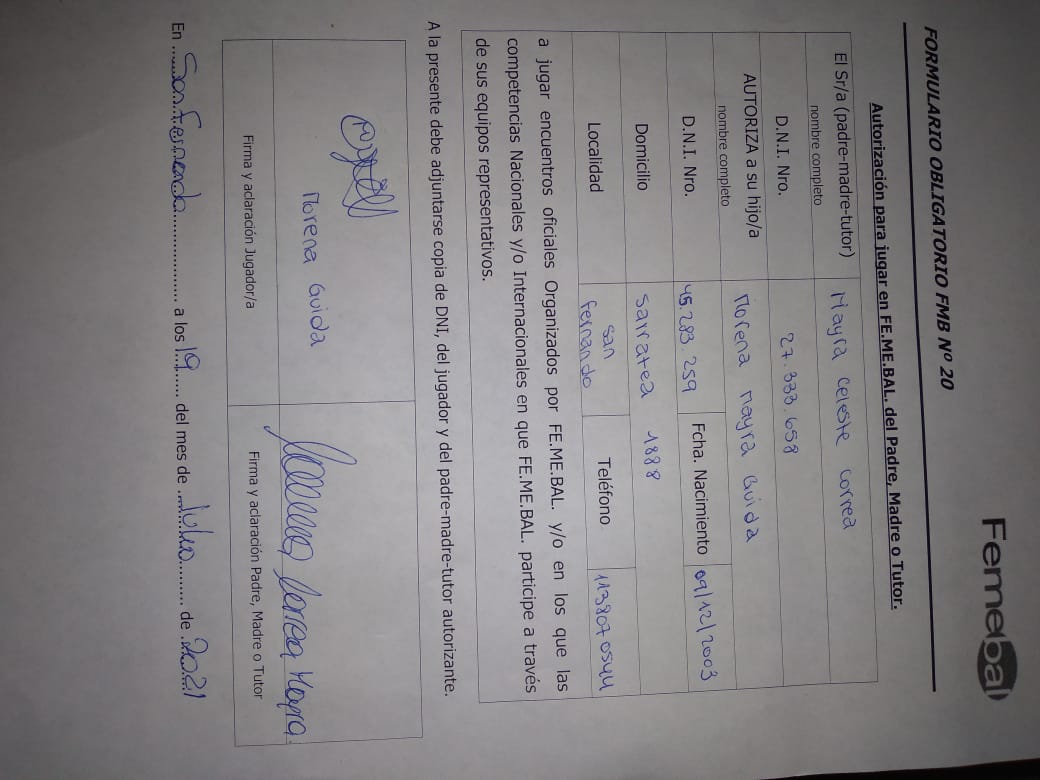 Femebal
FORMULARIO OBLIGATORIO FMB Nº 20
Autorización para jugar en FE.ME.BAL. del Padre, Madre o Tutor.
El Sr/a (padre-madre-tutor)
nombre completo
Mayra Celeste Correa
D.N.I. Nro.
27.333.658
AUTORIZA a su hijo/a
nombre completo
Morena Mayra Guida
D.N.I. Nro.
45.283.259
Fcha. Nacimiento
09/12/2003
Domicilio
Sarratea 1888
Localidad
San
Fernando
Teléfono
1138070544
a jugar encuentros oficiales Organizados por FE.ME.BAL. y/o en los que las
competencias Nacionales y/o Internacionales en que FE.ME.BAL. participe a través
de sus equipos representativos.
A la presente debe adjuntarse copia de DNI, del jugador y del padre-madre-tutor autorizante.
Morena Guida
Correa Mayra
Firma y aclaración Jugador/a
Firma y aclaración Padre, Madre o Tutor
En San Fernando a los 19 del mes de Julio de 2021